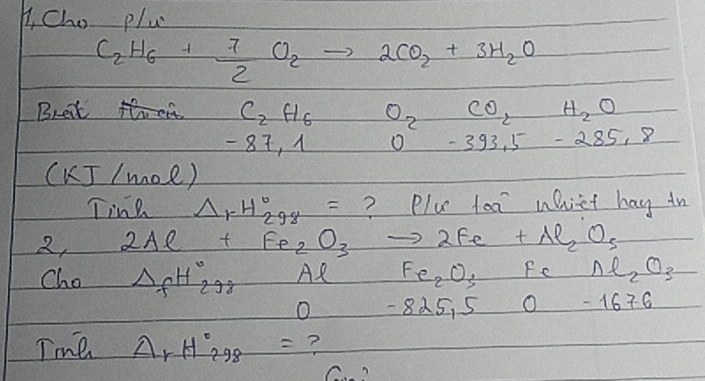 1, Cho p/ư
C2H6 + 7/2 O2 → 2CO2 + 3H2O
Biết C2H6 O2 CO2 H2O
-87,1 0 -393,5 -285,8
(KJ/mol)
Tính ΔrH°298 = ? P/ư toả nhiệt hay
2, 2Al + Fe2O3 → 2Fe + Al2O3
Cho ΔfH°298 Al Fe2O3 Fe Al2O3
0 -825,5 0 -1676
Tính ΔrH°298 = ?